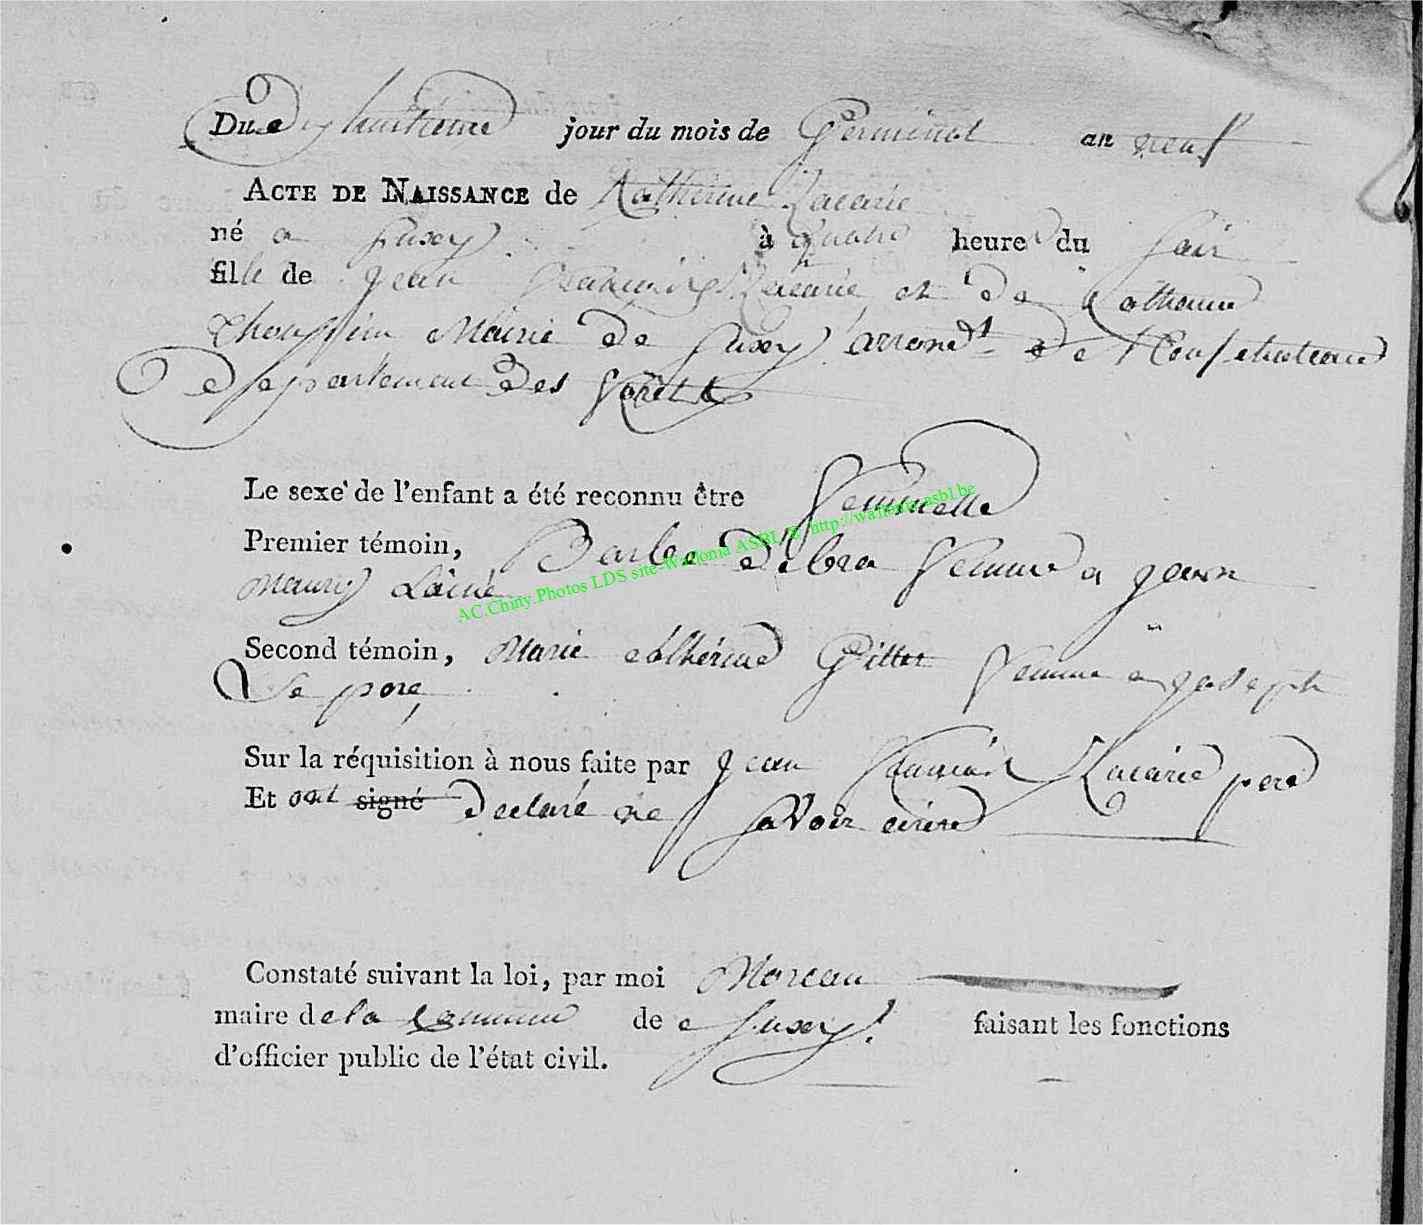 Du dix huitieme jour du mois de Germinal an neuf
ACTE DE NAISSANCE de Katherine Zacarie
né a Suxey à quatre heure du soir
fille de Jean Zacarie et de Catherine
Mairie de Suxey arrond.t de Neufchateau
Departement des Forets
Le sexe de l'enfant a été reconnu être femmelle
Premier témoin, Barbe femme a jean
Maury
Second témoin, Marie Gillet femme a joseph
Sur la réquisition à nous faite par Jean Zacarie pere
Et ont signé declaré ne savoir ecrire
Constaté suivant la loi, par moi Moreau
maire de la commune de Suxey faisant les fonctions
d'officier public de l'état civil.
AC.Chiny.Photos LDS site-Wallonia ASBL © http://wallonia-asbl.be